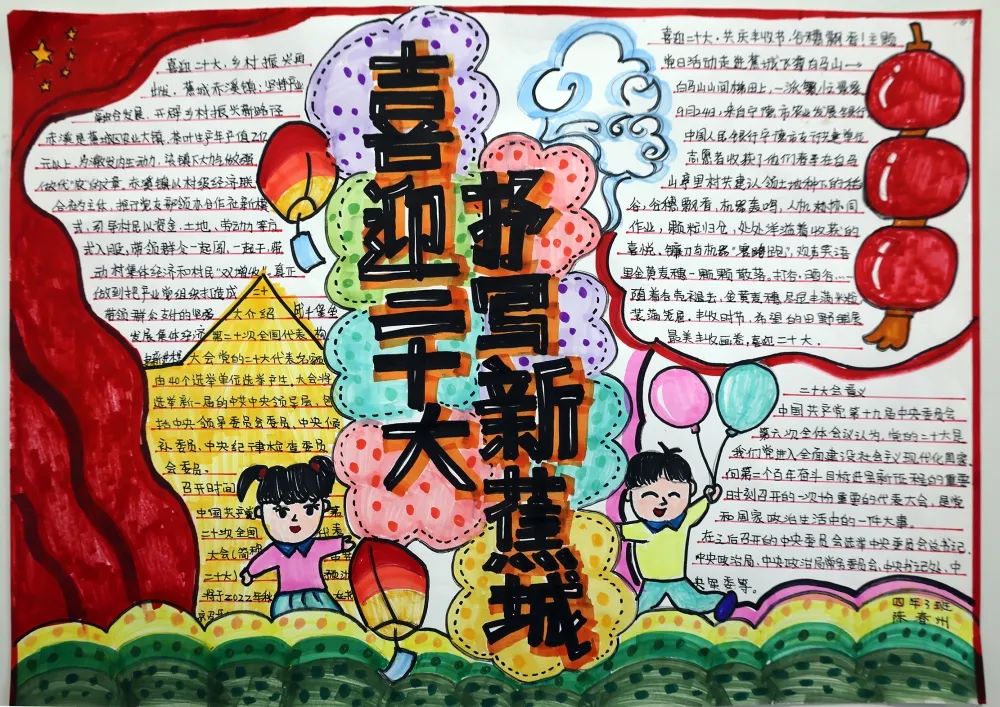 喜迎二十大
抒写新蕉城
喜迎二十大,乡村振兴再
出发,蕉城赤溪镇:坚持产业
融合发展,开辟乡村振兴新路径
赤溪是蕉城区农业大镇,茶叶生产年产值2亿
元以上,为激发内生动力,该镇下大力气做强
做优“农”的文章,赤溪镇以村级经济联
合社为主体,推行党支部领办合作社新模
式,引导村民以资金、土地、劳动力等方
式入股,带领群众一起闯、一起干,推
动村集体经济和村民“双增收”,真正
做到把产业党组织打造成
带领群众 战斗堡垒
发展集体经济
二十
大介绍
第二十次全国代表
大会党的二十大代表名额
由40个选举单位选举产生,大会将
选举新一届的中共中央领导层,包
括中央领导委员会委员、中央候
补委员、中央纪律检查委员
会委员。
召开时间
中国共产党第
二十次全国
大会(简称
二十大)
将于2022年
喜迎二十大,共庆丰收节,谷穗飘香!主题
党日活动走进蕉城飞鸾白马山→
白马山山间梯田上,一派繁忙景象
9月24日,来自宁德市农业发展银行
中国人民银行宁德市支行党建单位
志愿者收获了他们春季在白马
山草里村共建认领土地种下的稻
谷,谷穗飘香,机器轰鸣,人机协同
作业,颗粒归仓,处处洋溢着收获的
喜悦,镰刀与机器“赛蹲跑”,欢声笑语
里金黄麦穗一颗颗散落,打谷、晒谷……
随着谷壳褪去,金黄麦穗尽是丰满米粒
芳满笼屉,丰收时节,希望的田野铺展
最美丰收画卷,喜迎二十大。
二十大会意义
中国共产党第十九届中央委员会
第六次全体会议认为,党的二十大是
我们党进入全面建设社会主义现代化国家、
向第二个百年奋斗目标进军新征程的重要
时刻召开的一次十分重要的代表大会,是党
和国家政治生活中的一件大事。
在之后召开的中央委员会选举中央委员会总书记、
中央政治局、中央政治局常务委员会、中央书记处、中
央军委等。
四年3班
陈春州